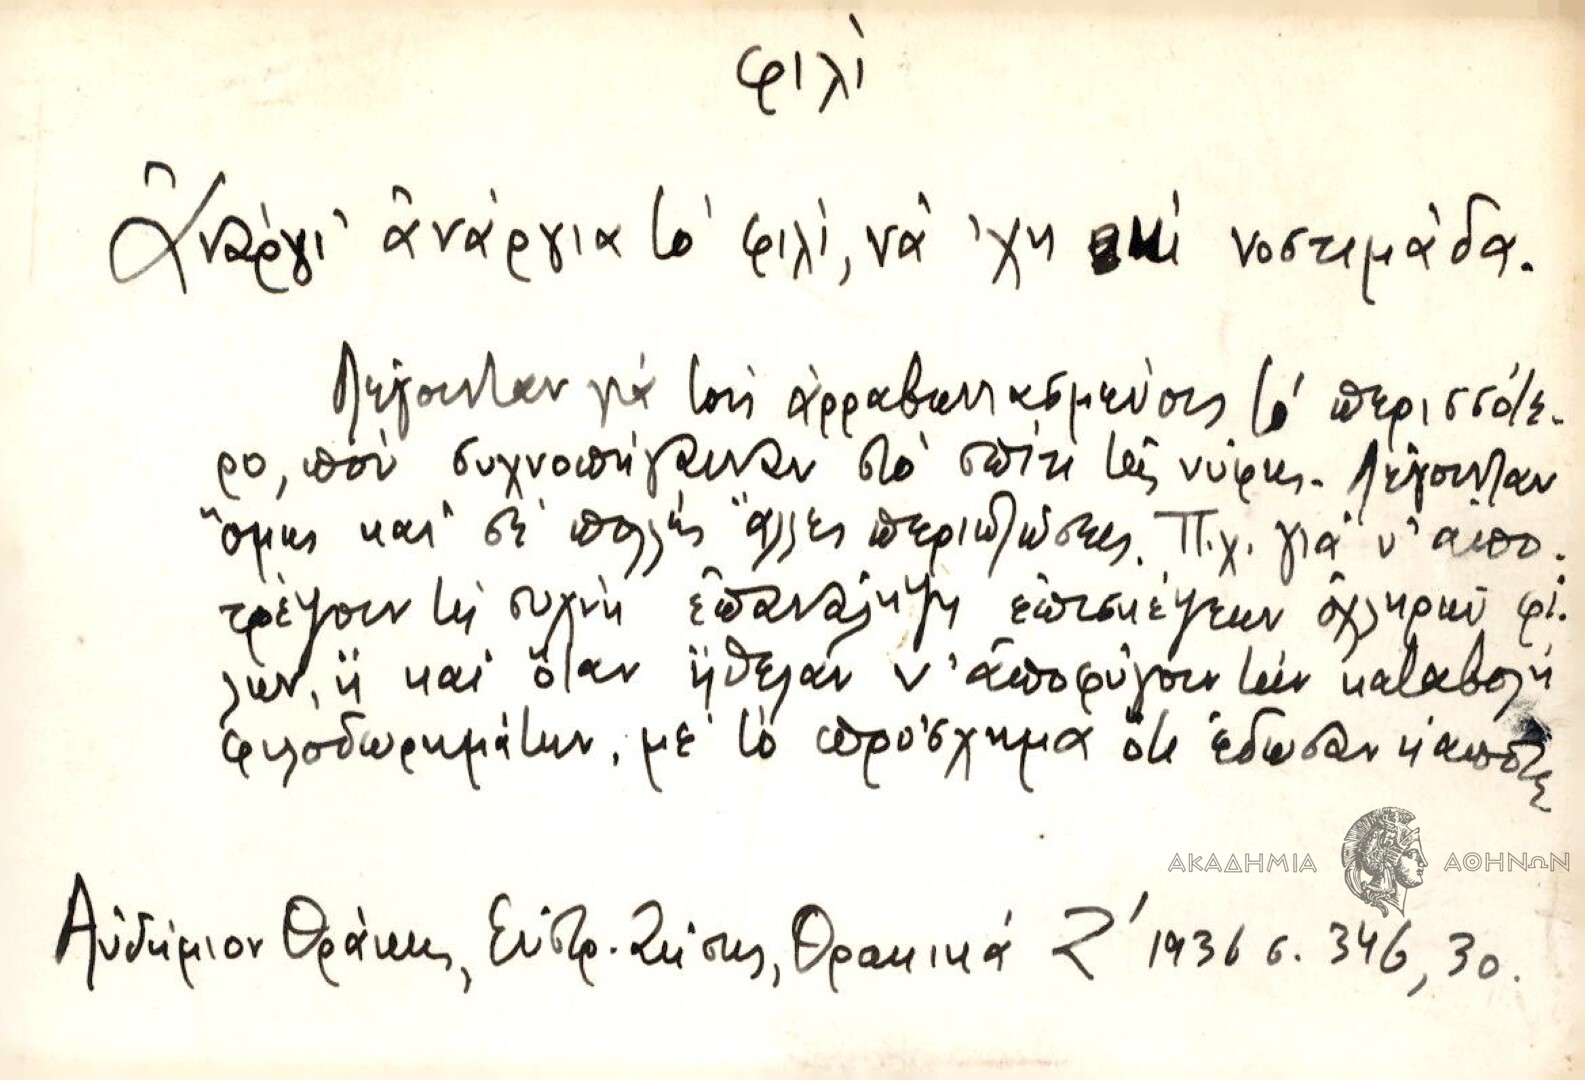 φιλὶ
Ἀνάργι' ἀνάργια τὸ φιλὶ, νὰ 'χη κὶ νοστιμάδα.
Λέγονταν γιὰ τοὺς ἀρραβωνιασμένους τὸ περισσότε-
ρο, ποὺ συχνοπήγαιναν στὸ σπίτι τῆς νύφης. Λέγονταν
ὅμως καὶ σὲ πολλὲς ἄλλες περιπτώσεις. Π.χ. γιὰ ν' ἀπο-
τρέψουν τὴ συχνὴ ἐπανάληψη ἐπισκέψεων ὀχληρῶν φί-
λων, ἢ καὶ ὅταν ἤθελαν ν' ἀποφύγουν τὴν καταβολὴ
φιλοδωρημάτων, μὲ τὸ πρόσχημα ὅτι ἔδωσαν κάποτε
Αὐδήμιον Θράκης, Εὐστρ. Ζήσης, Θρακικά Ζ' 1936 σ. 346, 30.
ΑΚΑΔΗΜΙΑ ΑΘΗΝΩΝ